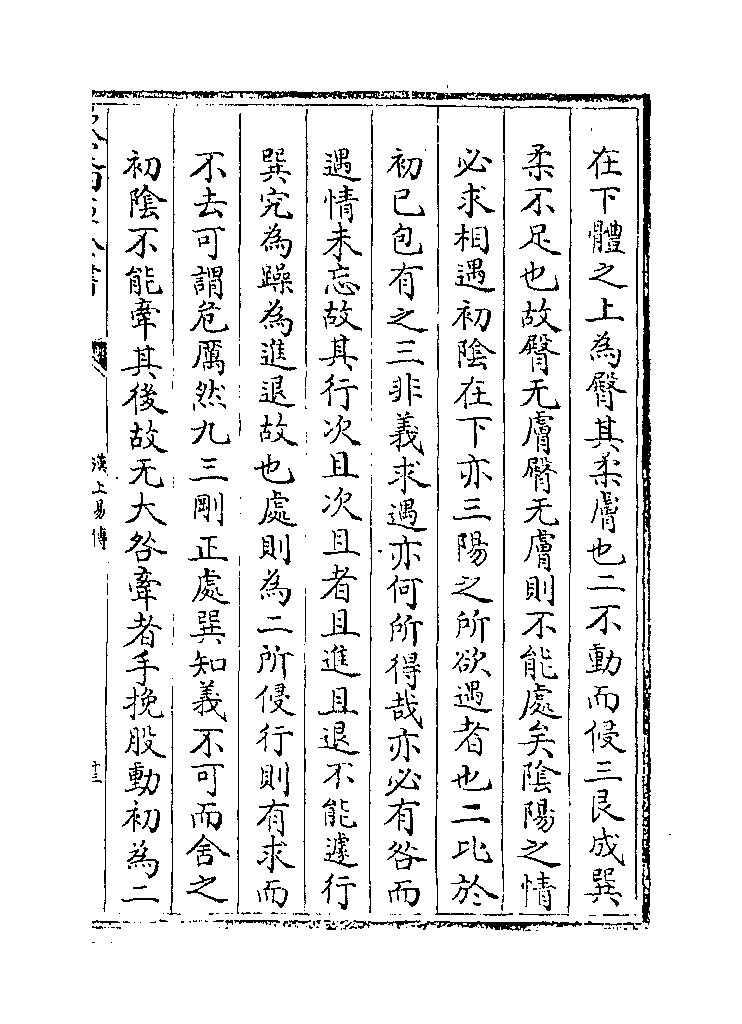 在下體之上為臀其柔膚也二不動而侵三艮成巽
柔不足也故臀无膚臀无膚則不能處矣陰陽之情
必求相遇初陰在下亦三陽之所欲遇者也二比於
初已包有之三非義求遇亦何所得哉亦必有咎而
遇情未忘故其行次且次且者且進且退不能遽行
巽究為躁為進退故也處則為二所侵行則有求而
不去可謂危厲然九三剛正處巽知義不可而舍之
初陰不能牽其後故无大咎牽者手挽股動初為二
漢上易傳